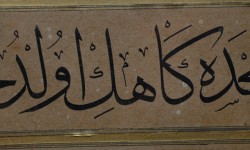 جده كاهك اولد